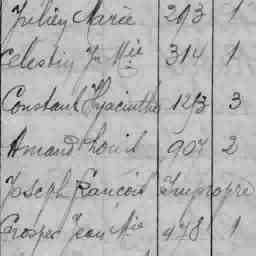 Julien Marie 293 1
Celestin J Mie 314 1
Constant Hyacinthe 1293 3
Amand Louis 907 2
Joseph Francois Impropre
Prosper Jean Mie 978 1